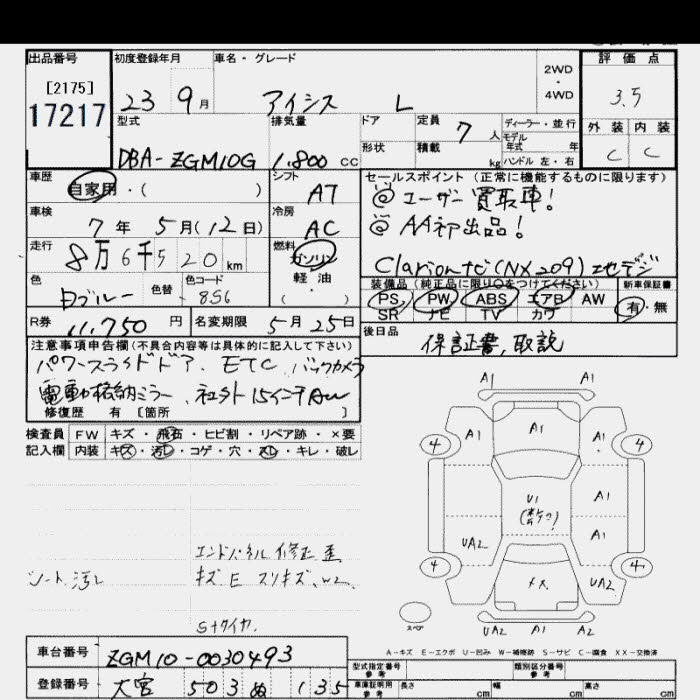 出品番号
[2175]
17217
初度登録年月
23 9月
車名・グレード
アイシス L
2WD
・
4WD
評価点
3.5
外装 内装
C C
型式
DBA-ZGM10G
排気量
1.800 cc
ドア
形状
定員 7 人
積載 kg
ディーラー・並行
モデル
年式 年
ハンドル 左・右
車歴
自家用・( )
シフト
AT
車検
7年 5月(12日)
冷房
AC
走行
8万6千520km
燃料
ガソリン
軽油
( )
色
色替
色コード
8S6
R券
11,750円
名変期限 5月25日
セールスポイント(正常に機能するものに限ります)
@ユーザー買取車!
@AA初出品!
Clarionナビ(NX209)地デジ
装備品(純正品に限り○をつけてください)
新車保証書
PS PW ABS エアB AW
SR ナビ TV カワ
有・無
後日品
保証書、取説
注意事項申告欄(不具合内容等は具体的に記入して下さい)
パワースライドドア、ETC、バックカメラ
電動格納ミラー、社外15インチAW
修復歴 有 [箇所
検査員 FW キズ・飛石・ヒビ割・リペア跡・×要
記入欄 内装 キズ・汚レ・コゲ・穴・スレ・キレ・破レ
シート汚レ
エンドパネル修正歪
キズE スリキズ、W2
Sタイヤ
A1 A1
A1 A1 A1
4 4
U1
A1
UA2 A1
4 4
UA2
スペア
UA2 A1 A2
A-キズ E-エクボ U-凹み W-補修跡 S-サビ C-腐食 XX-交換済
車台番号 ZGM10-0030493
登録番号 大宮 503 ぬ 135
型式指定番号
参考
類別区分番号
参考
車庫証明用
参考
長さ cm 幅 cm 高さ cm